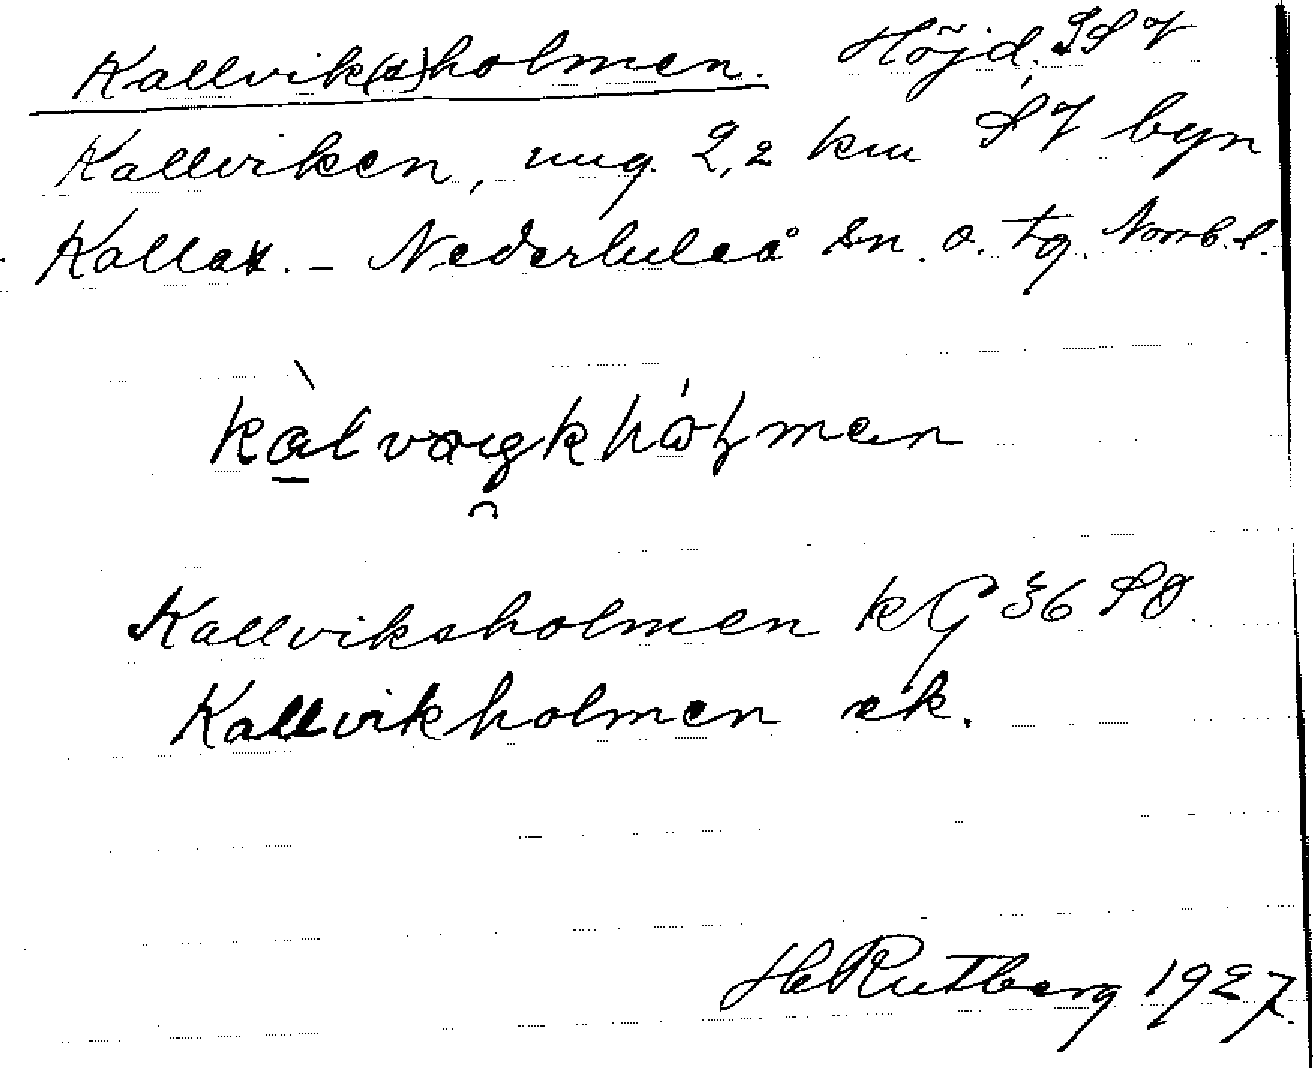 Kallvik(s)holmen. Höjd, SV
Kallviken, ung. 2,2 km SV byn
Kallax. – Nederluleå sn. o. tg. Norrb. l.
Kallviksholmen kG 36 SO
Kallvikholmen ek.
H Rutberg 1927.